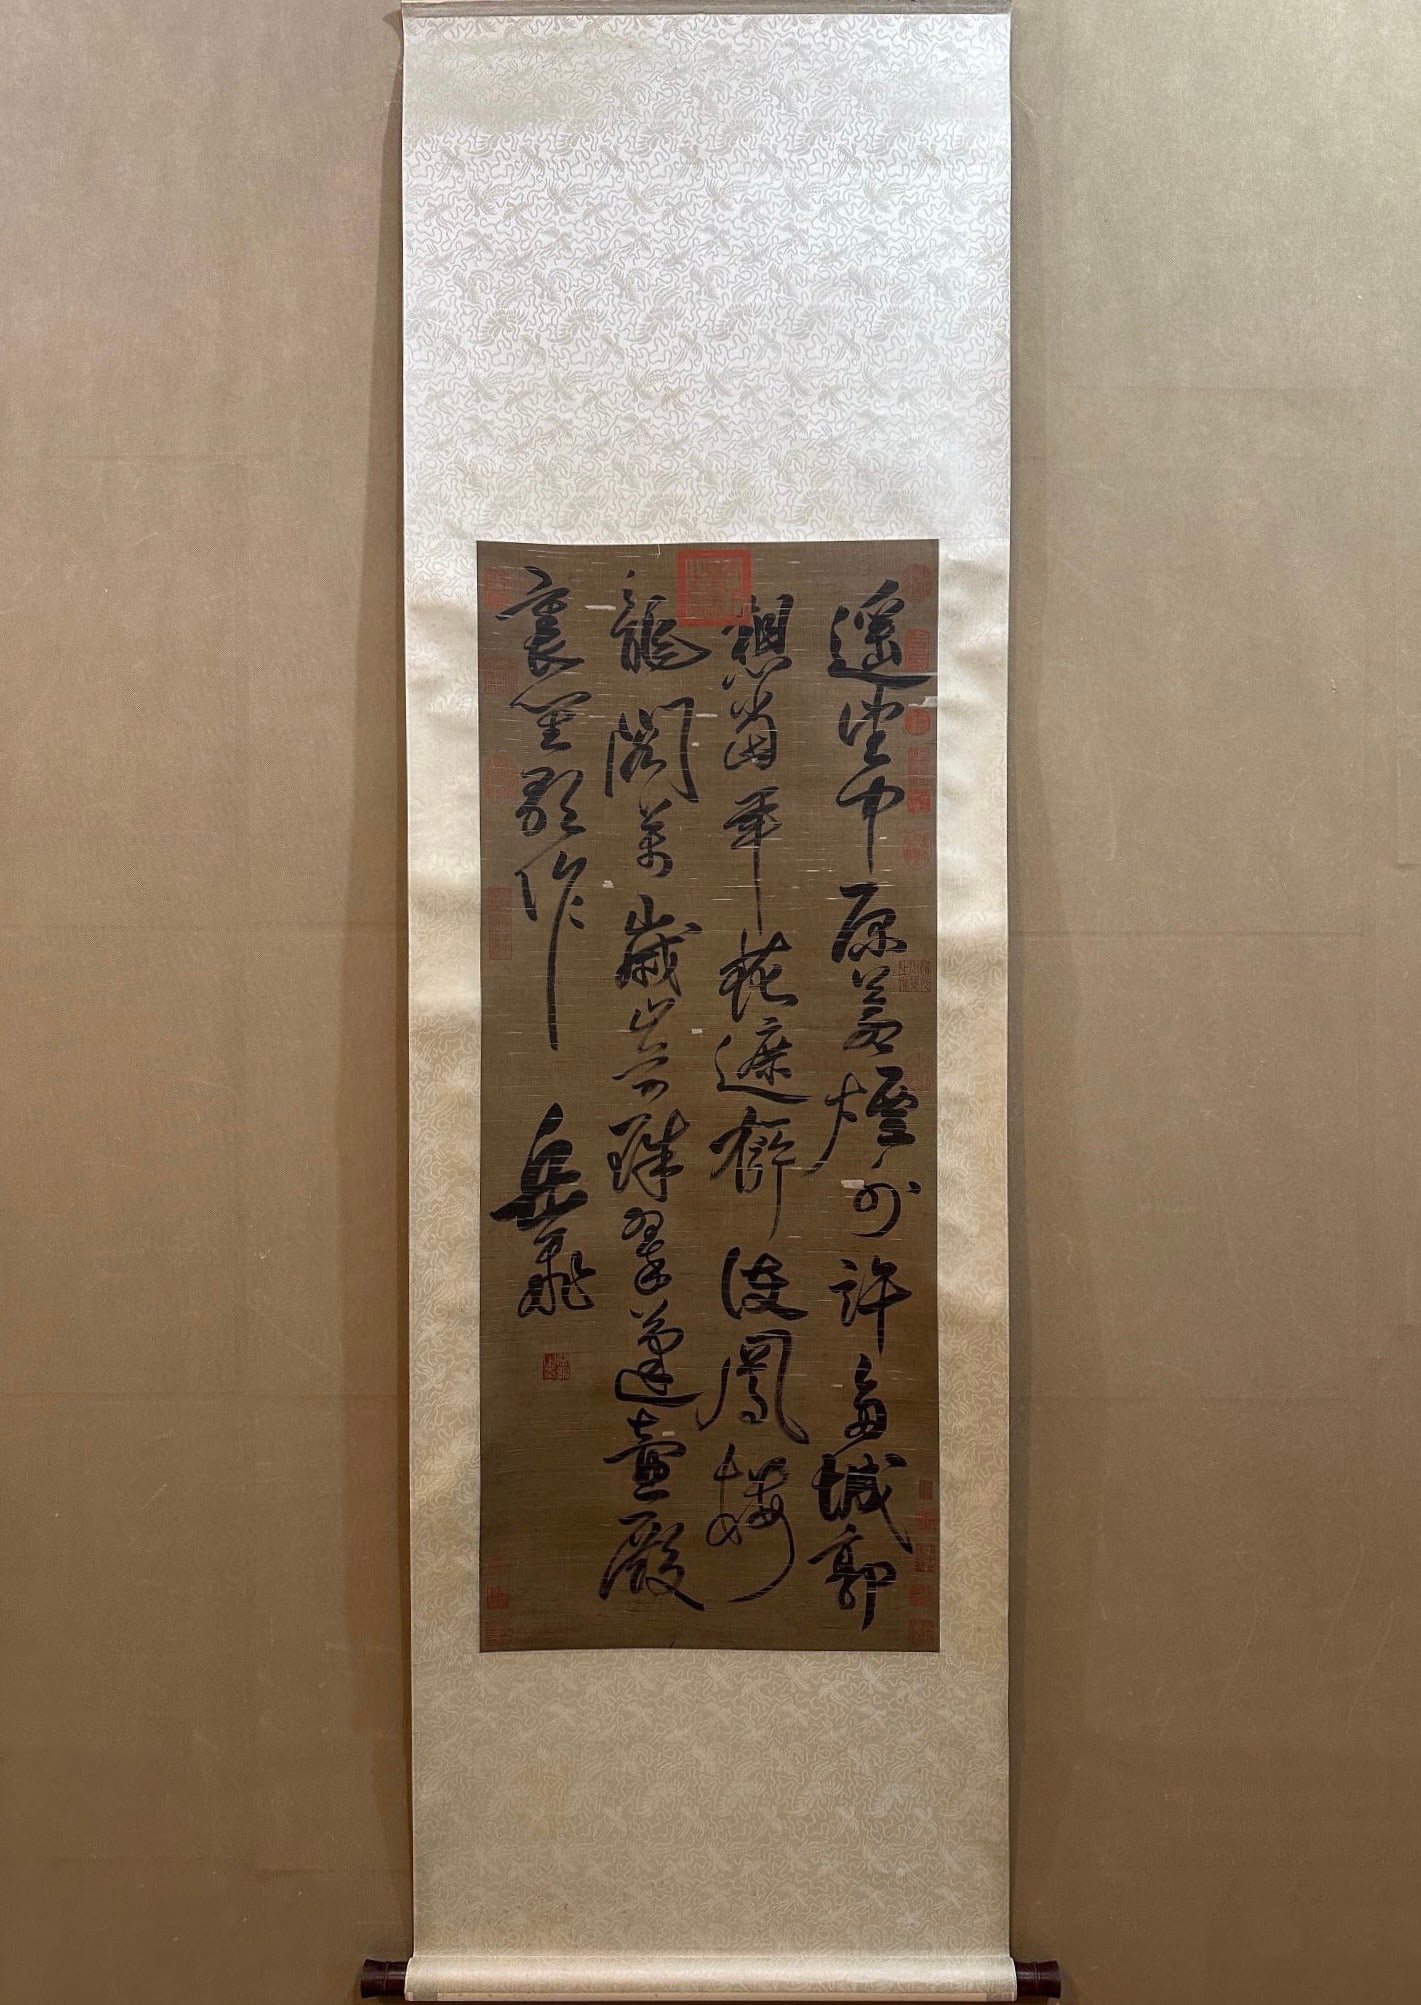 遙望中原荒煙外許多城郭
想當年花遮柳護鳳樓
龍閣萬歲山前珠翠繞蓬壺殿
裏笙歌作
岳飛